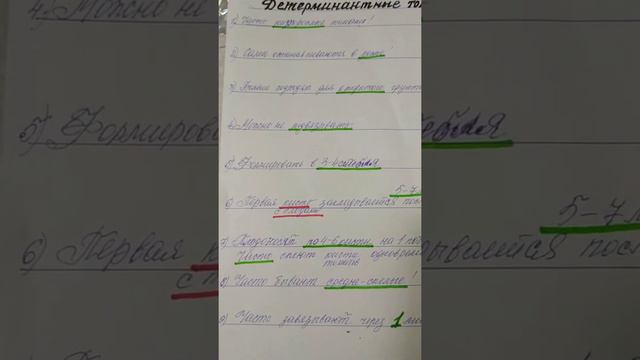 Детерминантные то
1) Часто низкорослые томаты!
2) Сами останавливаются в росте!
3) Больше подходят для открытого грунта
4) Можно не подвязывать.
5) Формировать в 3-4 стебля
5-7 л
6) Первая кисть закладывается пос
с плодами
7) Плодоносят по 4-6 кисти, на 1 поб
Часто спеют кисти одновреме
томатов
8) Часто бывают средне-спелые!
9) Часто завязывают через 1 ли
4. Можно не
5) Формирова
стебля
5-7
6) Первая к
с п
дывается посл